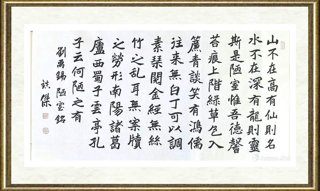 山不在高有仙則名
水不在深有龍則靈
斯是陋室惟吾德馨
苔痕上階綠草色入
簾青談笑有鴻儒
往來無白丁可以調
素琴閱金經無絲
竹之亂耳無案牘
之勞形南陽諸葛
廬西蜀子雲亭孔
子云何陋之有
劉禹錫 陋室銘
傑